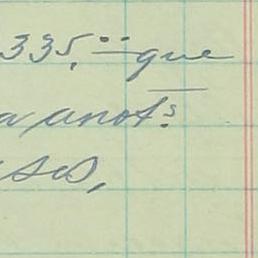 335,⁰⁰ que
a anot.s
sos,